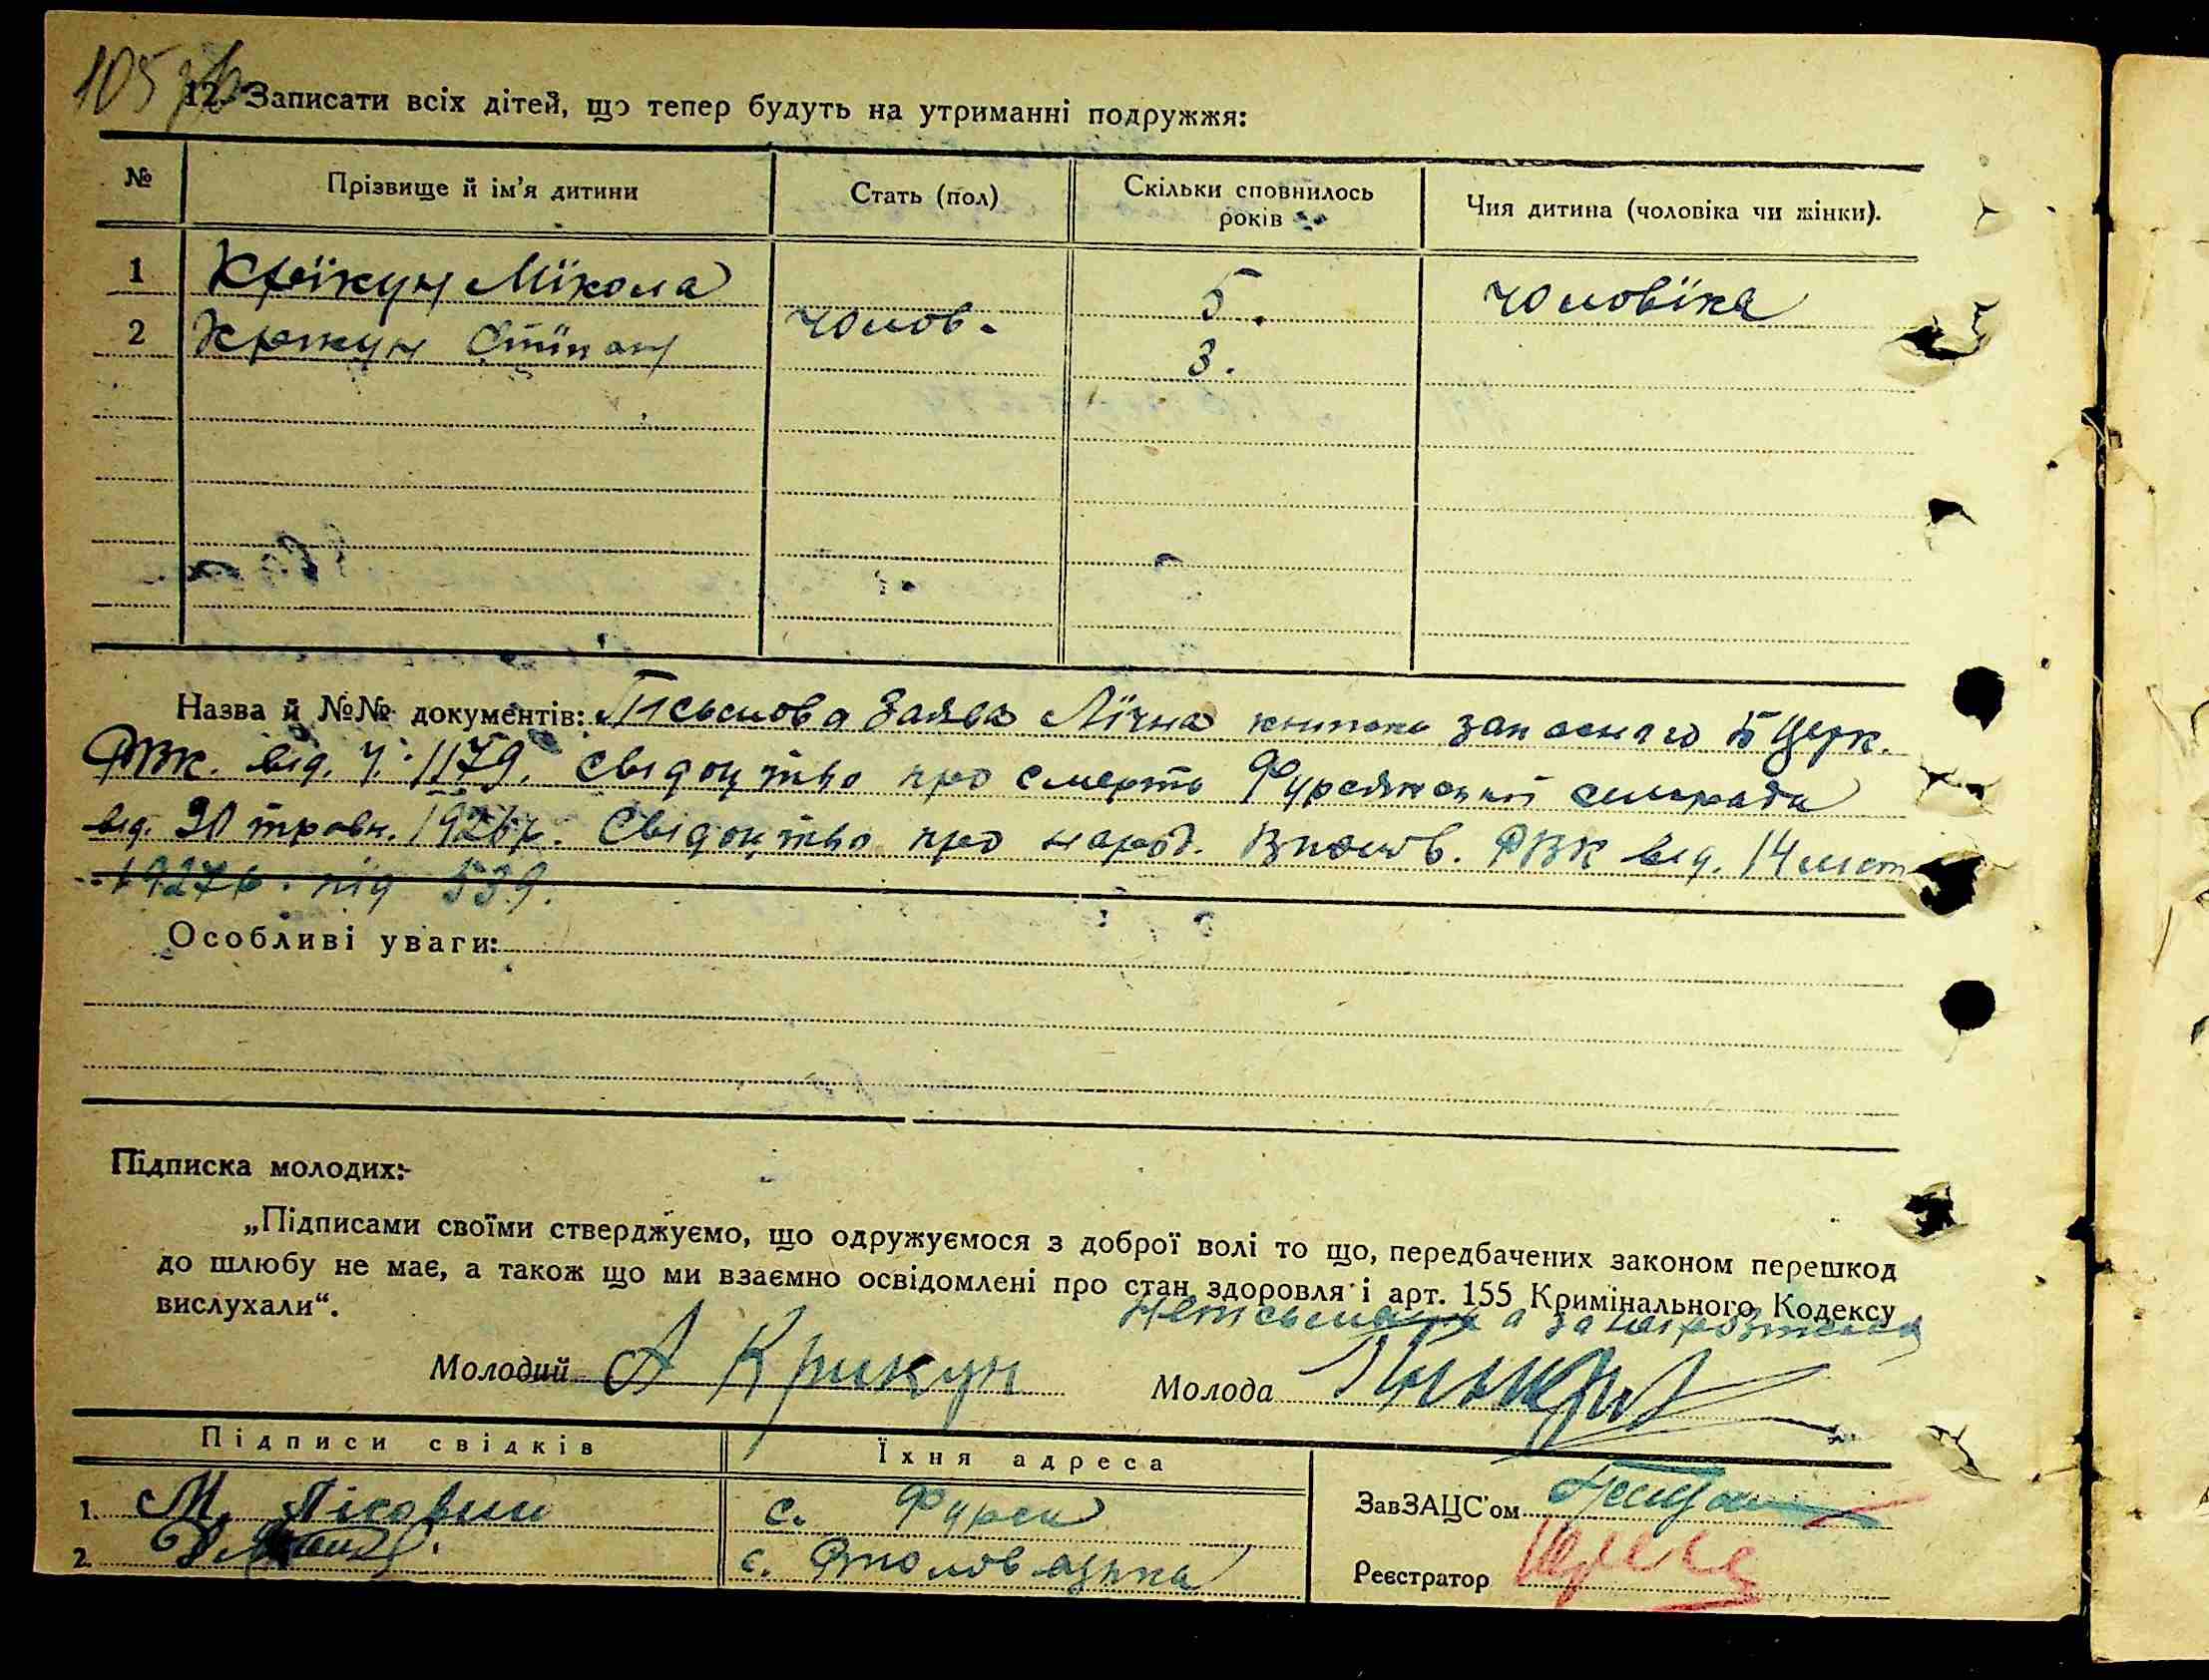 105 зв
12. Записати всіх дітей, що тепер будуть на утриманні подружжя:
№ Прізвище й ім'я дитини Стать (пол) Скільки сповнилось років Чия дитина (чоловіка чи жінки).
1 Крїкун Мїкола 5. чоловїка
2 Крикун Стїпан чолов. 3.
Назва й №№ документів: Письмова Заява Лїчна книжка запасного Б Церк.
РВК. від. ч. 1179. Свідоцтво про смерть Фурсянської сільради
від. 30 травн. 1926р. Свідоцтво про народ. РВК від. 14 лист
1927р. під 539.
Особливі уваги:
Підписка молодих:-
„Підписами своїми стверджуємо, що одружуємося з доброї волі то що, передбачених законом перешкод
до шлюбу не має, а також що ми взаємно освідомлені про стан здоровля і арт. 155 Кримінального Кодексу
вислухали“.
Неписьменна а за
Молодий А Крикун Молода
Підписи свідків Їхня адреса
1. М. с. Фурси ЗавЗАЦС'ом
2. с. Реєстратор